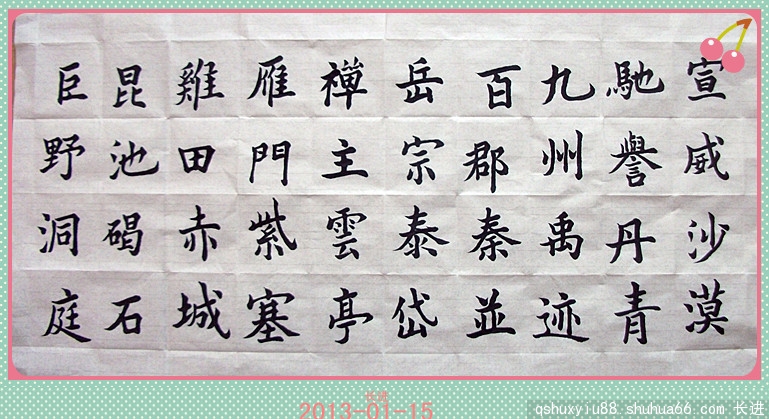 宣威沙漠
馳譽丹青
九州禹迹
百郡秦並
岳宗泰岱
禪主雲亭
雁門紫塞
雞田赤城
昆池碣石
巨野洞庭
长进
2013-01-15
qshuxyiu88.shuhua66.com 长进